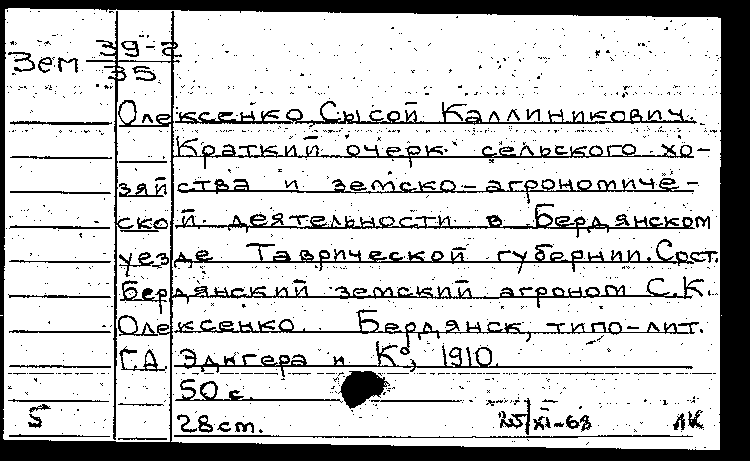 Зем 39-2
35
Олексенко, Сысой Каллиникович.
Краткий очерк сельского хо-
зяйства и земско-агрономиче-
ской деятельности в Бердянском
уезде Таврической губернии. Сост.
Бердянский земский агроном С.К.
Олексенко. Бердянск, типо-лит.
Г.А. Эдигера и К°, 1910.
50 с.
5 28 см. XI-68 ЛК